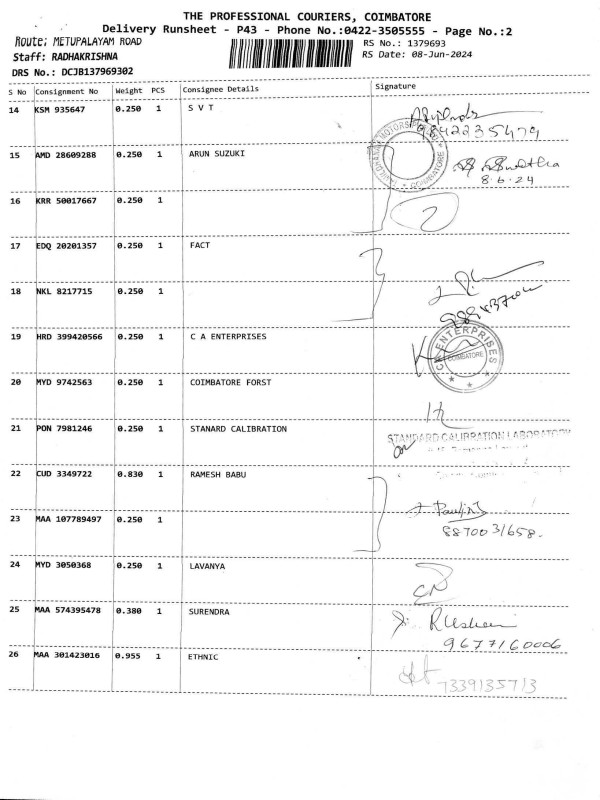 THE PROFESSIONAL COURIERS, COIMBATORE
Delivery Runsheet - P43 - Phone No.:0422-3505555 - Page No.:2
Route: METUPALAYAM ROAD
RS No.: 1379693
Staff: RADHAKRISHNA
RS Date: 08-Jun-2024
DRS No.: DCJB137969302
S No Consignment No Weight PCS Consignee Details Signature
14 KSM 935647 0.250 1 S V T
9842235479
15 AMD 28609288 0.250 1 ARUN SUZUKI
COIMBATORE
8.6.24
16 KRR 50017667 0.250 1
17 EDQ 20201357 0.250 1 FACT
18 NKL 8217715 0.250 1
19 HRD 399420566 0.250 1 C A ENTERPRISES
ENTERPRISES
COIMBATORE
20 MYD 9742563 0.250 1 COIMBATORE FORST
21 PON 7981246 0.250 1 STANARD CALIBRATION
STANDARD CALIBRATION LABORATORY
22 CUD 3349722 0.830 1 RAMESH BABU
23 MAA 107789497 0.250 1
8870031658.
24 MYD 3050368 0.250 1 LAVANYA
25 MAA 574395478 0.380 1 SURENDRA
9677160006
26 MAA 301423016 0.955 1 ETHNIC
7339135713